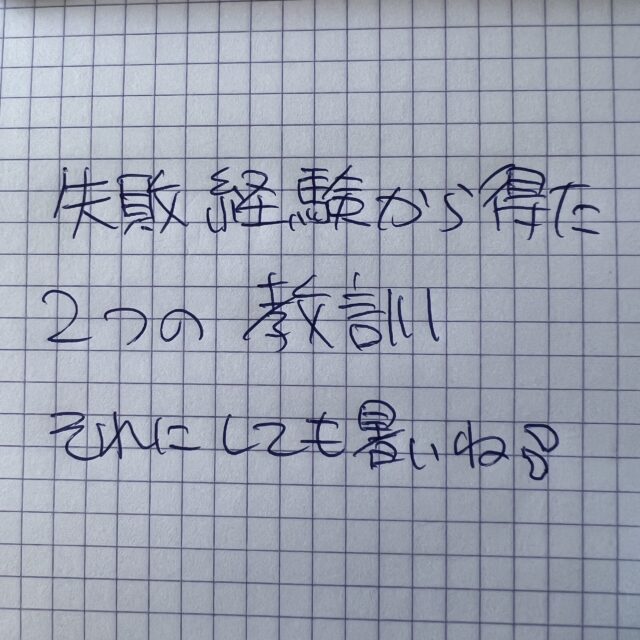 失敗経験から得た
2つの教訓
それにしても暑いね。